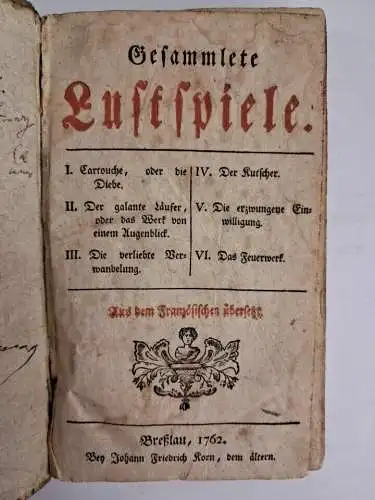 Gesammlete
Lustspiele.
I. Cartouche, oder die
Diebe.
II. Der galante Läufer,
oder das Werk von
einem Augenblick.
III. Die verliebte Ver-
wandelung.
IV. Der Kutscher.
V. Die erzwungene Ein-
willigung.
VI. Das Feuerwerk.
Aus dem Französischen übersetzt.
Breßlau, 1762.
Bey Johann Friedrich Korn, dem ältern.